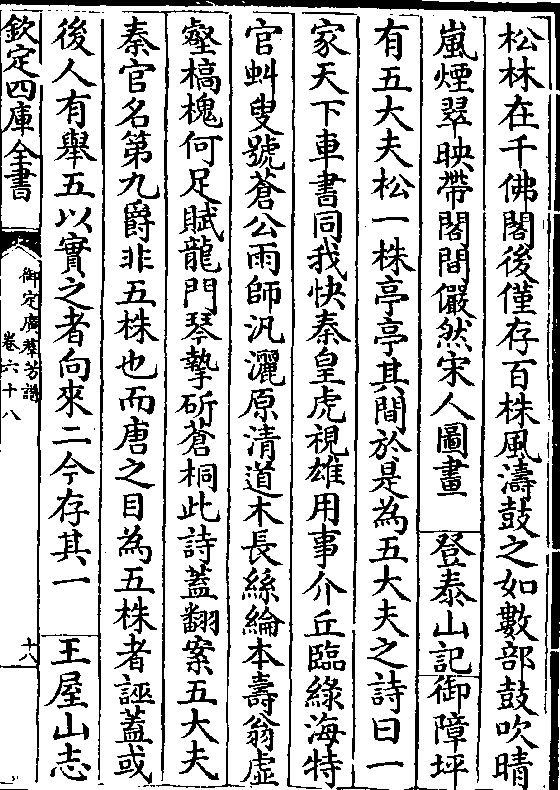 松林在千佛閣後僅存百株風濤鼓之如數部鼓吹晴
嵐煙翠映帶閣間儼然宋人圖畫 登泰山記御障坪
有五大夫松一株亭亭其間於是為五大夫之詩曰一
家天下車書同我快秦皇虎視雄用事介丘臨綠海特
官虯叟號蒼公雨師汎灑原清道木長絲綸本壽翁虛
壑槁槐何足賦龍門琴摯斫蒼桐此詩蓋翻案五大夫
秦官名第九爵非五株也而唐之目為五株者誣蓋或
後人有舉五以實之者向來二今存其一 王屋山志
欽定四庫全書
御定廣羣芳譜
卷六十八
十八